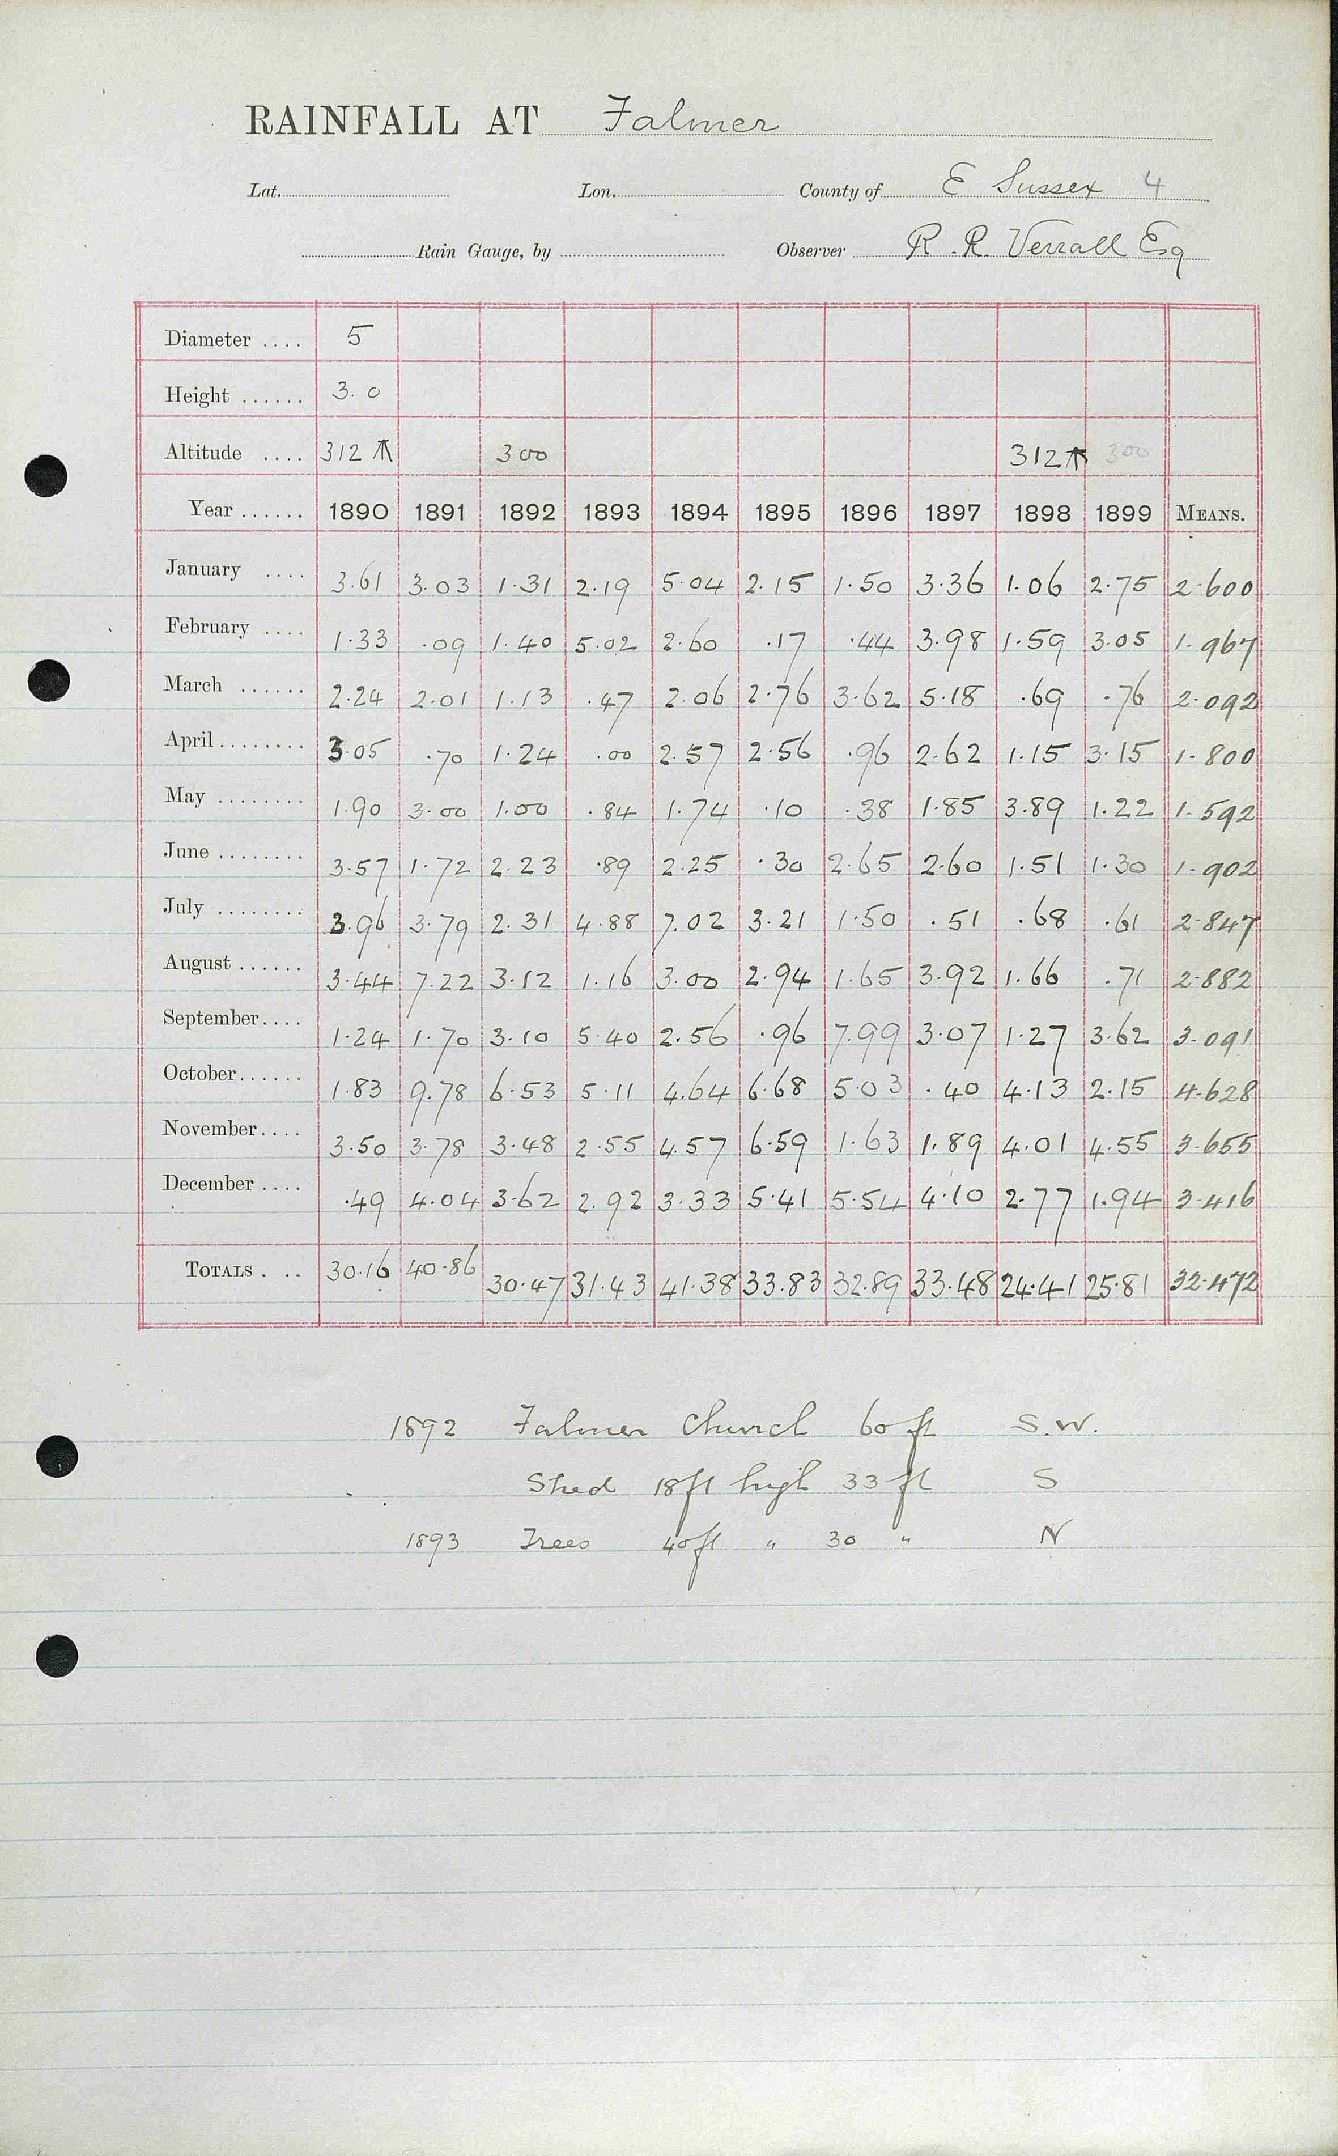 RAINFALL AT Falmer
Lat. Lon. County of E Sussex 4
Rain Gauge, by Observer R. R. Verrall Esq
Diameter .... 5
Height ...... 3.0
Altitude .... 312 ⚹ 300 312 ⚹ 300
Year ...... 1890 1891 1892 1893 1894 1895 1896 1897 1898 1899 MEANS.
January .... 3.61 3.03 1.31 2.19 5.04 2.15 1.50 3.36 1.06 2.75 2.600
February .... 1.33 .09 1.40 5.02 2.60 .17 .44 3.98 1.59 3.05 1.967
March ...... 2.24 2.01 1.13 .47 2.06 2.76 3.62 5.18 .69 .76 2.092
April ........ 3.05 .70 1.24 .00 2.57 2.56 .96 2.62 1.15 3.15 1.800
May ........ 1.90 3.00 1.00 .84 1.74 .10 .38 1.85 3.89 1.22 1.592
June ........ 3.57 1.72 2.23 .89 2.25 .30 2.65 2.60 1.51 1.30 1.902
July ........ 3.96 3.79 2.31 4.88 7.02 3.21 1.50 .51 .68 .61 2.847
August ...... 3.44 7.22 3.12 1.16 3.00 2.94 1.65 3.92 1.66 .71 2.882
September .... 1.24 1.70 3.10 5.40 2.56 .96 7.99 3.07 1.27 3.62 3.091
October ...... 1.83 9.78 6.53 5.11 4.64 6.68 5.03 .40 4.13 2.15 4.628
November .... 3.50 3.78 3.48 2.55 4.57 6.59 1.63 1.89 4.01 4.55 3.655
December .... .49 4.04 3.62 2.92 3.33 5.41 5.54 4.10 2.77 1.94 3.416
TOTALS .... 30.16 40.86 30.47 31.43 41.38 33.83 32.89 33.48 24.41 25.81 32.472
1892 Falmer Church 60 ft S.W.
Shed 18ft high 33 ft S
1893 Trees 40ft " 30 " N